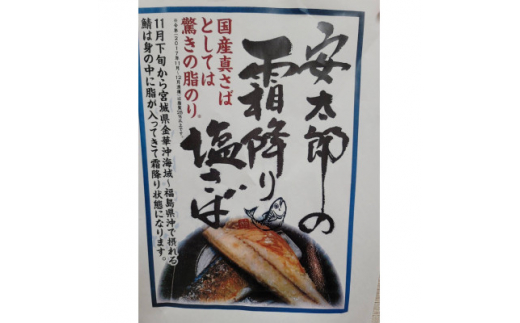 安太郎の
霜降り
塩さば
国産真さば
としては
驚きの脂のり。
11月下旬から宮城県金華沖海域〜福島県沖で摂れる
鯖は身の中に脂が入ってきて霜降り状態になります。